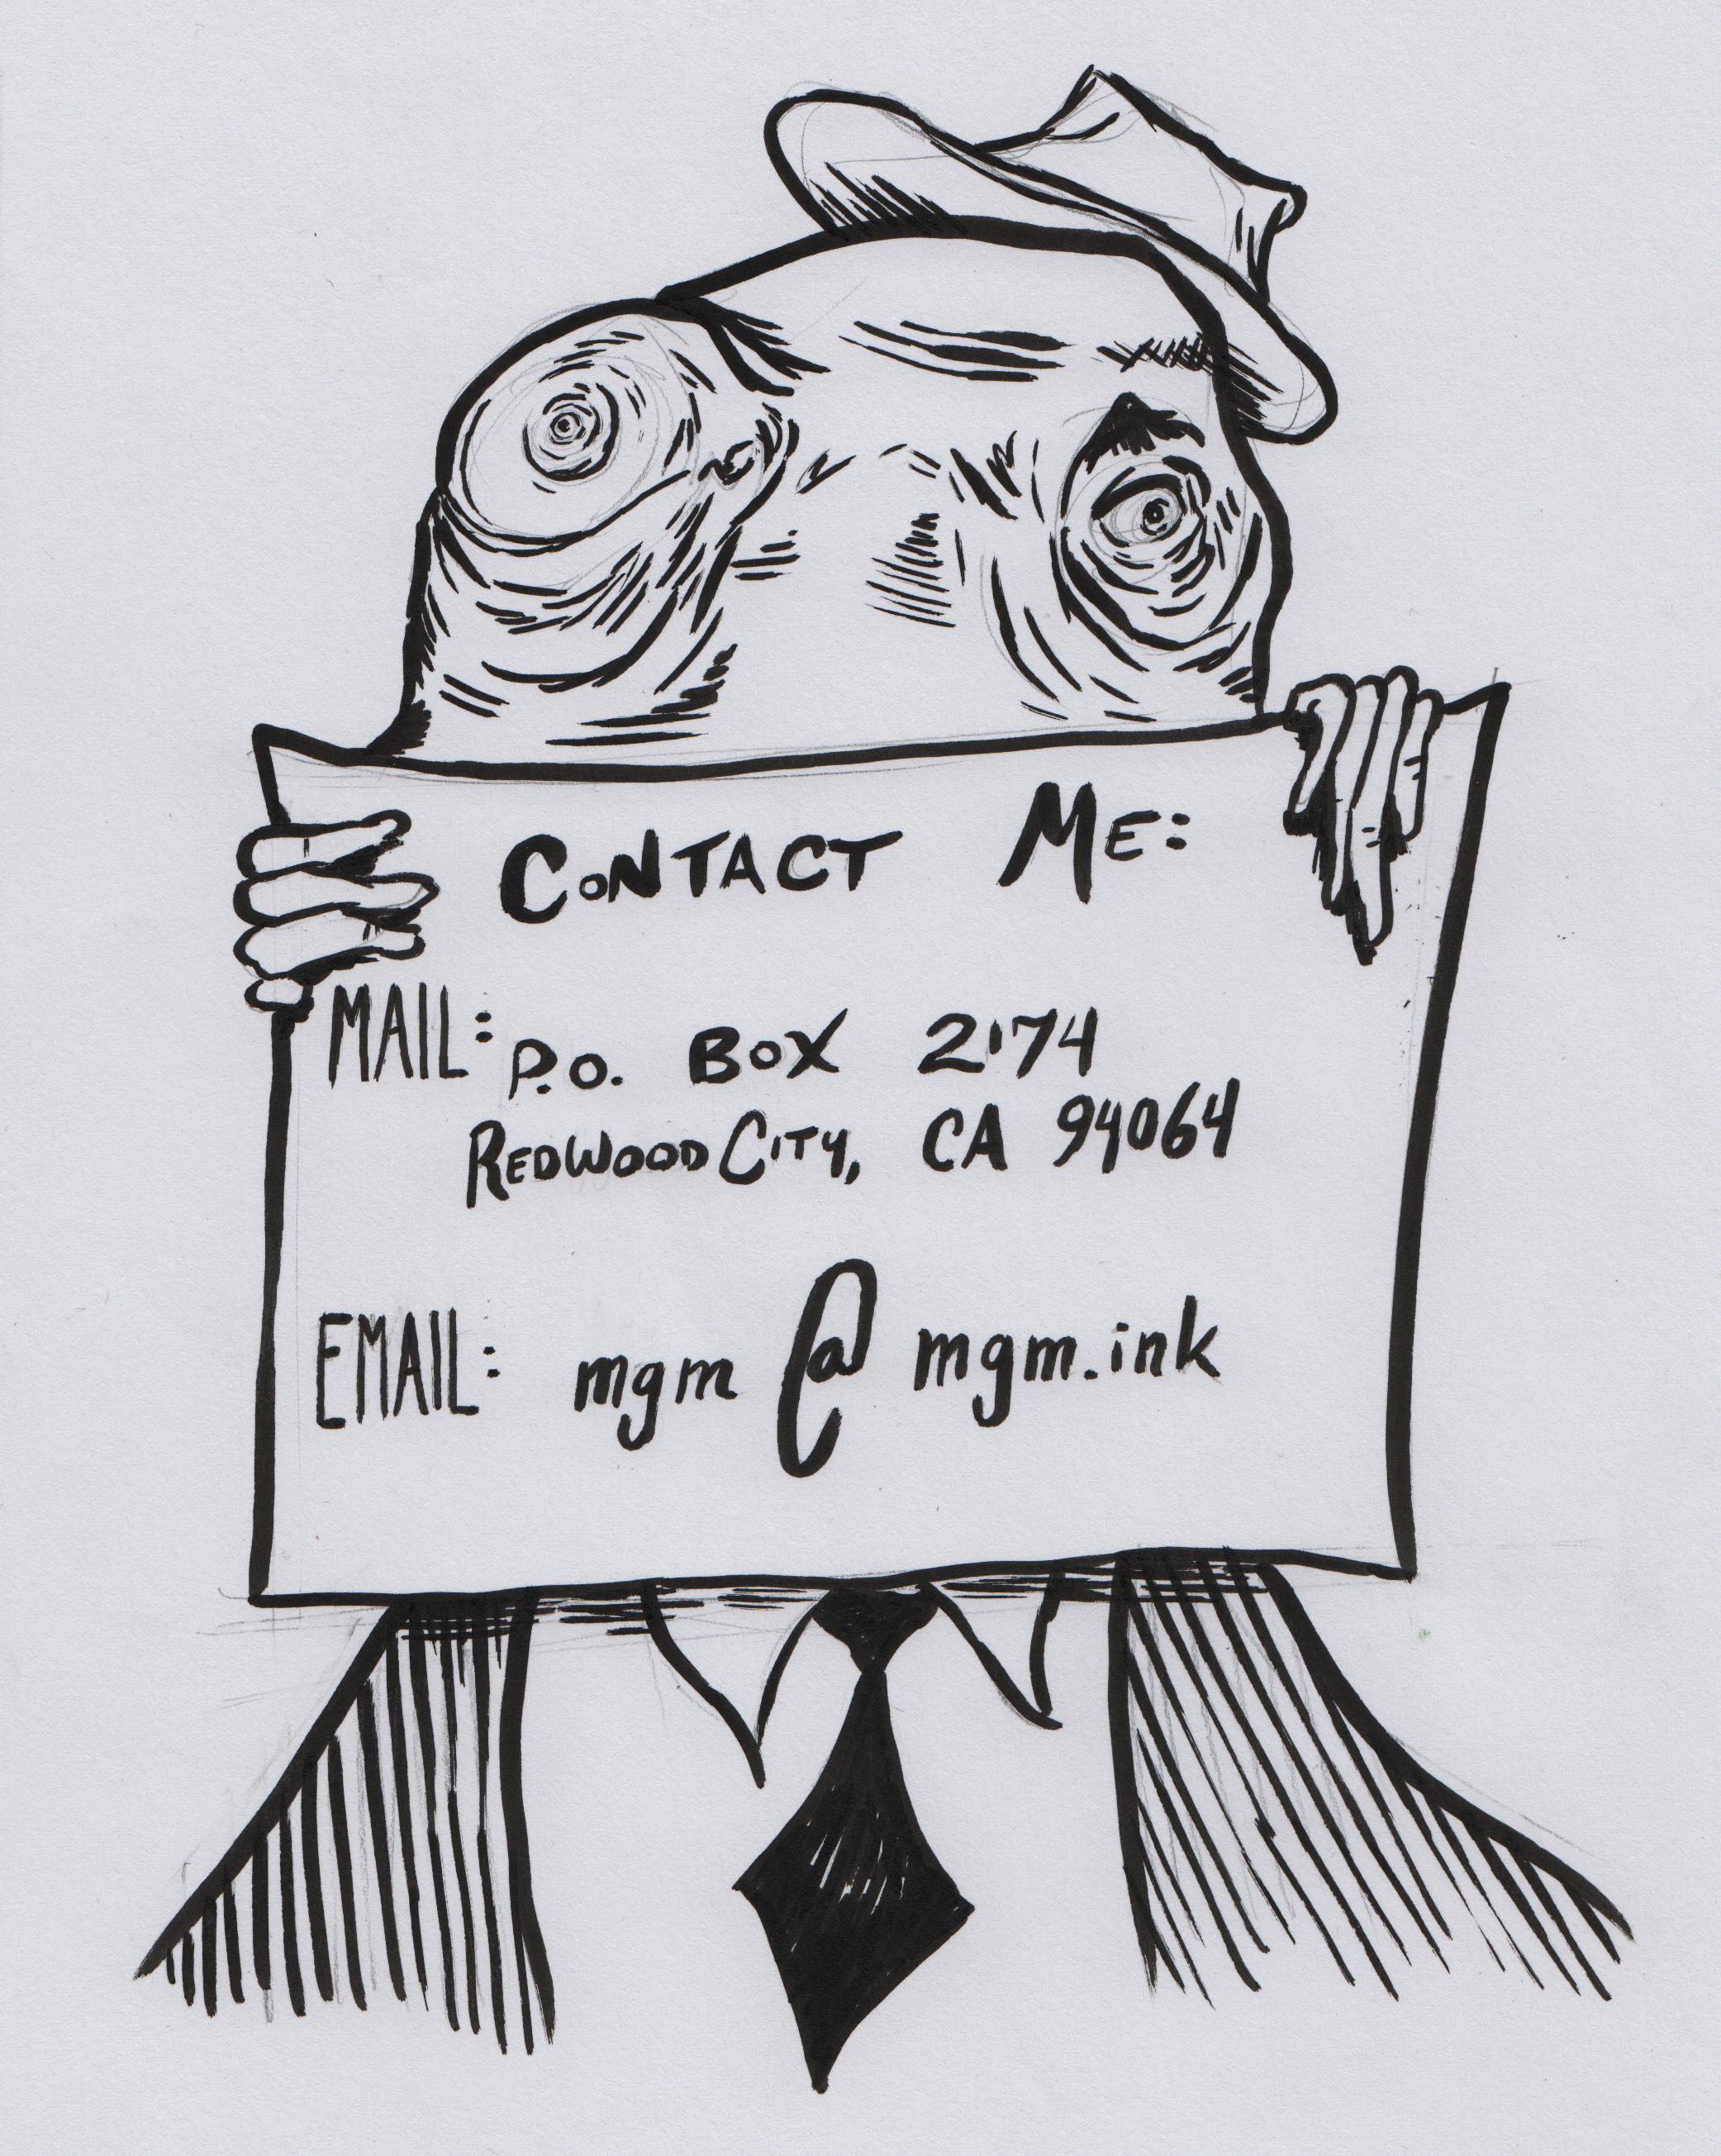 CONTACT ME:
MAIL: P.O. BOX 2174
REDWOOD CITY, CA 94064
EMAIL: mgm@mgm.ink